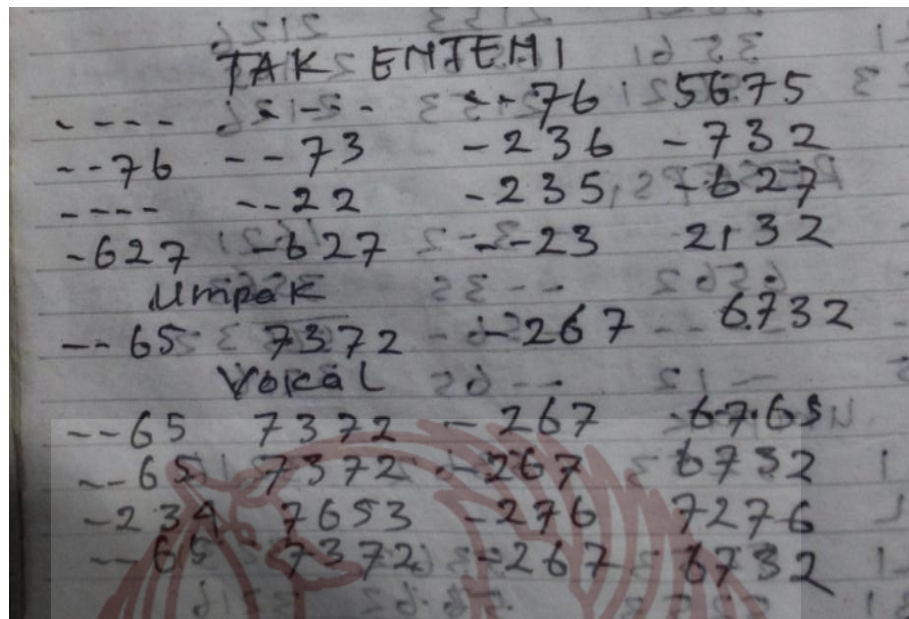 TAK ENTENI
- - - - - - - - - - 76 5675
- - 76 - - 73 - 236 - 732
- - - - - - 22 - 235 - 627
- 627 - 627 - - 23 2132
Umpak
- - 65 7372 - 267 6732
Vokal
- - 65 7372 - 267 6765
- - 65 7372 - 267 6732
- 234 7653 - 276 7276
- - 65 7372 - 267 6732